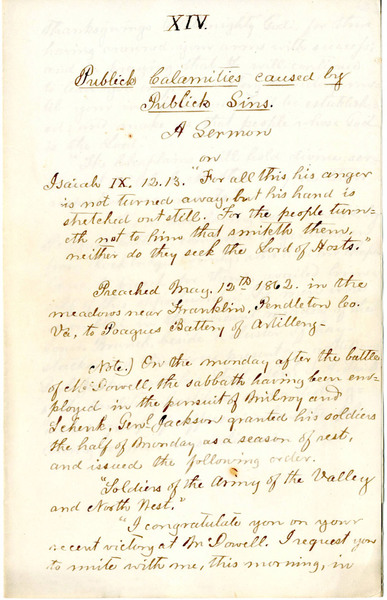 XIV.
Publick Calamities caused by
Publick Sins.
A Sermon
on
Isaiah IX. 12.13. "For all this his anger
is not turned away, but his hand is
stretched out still. For the people turn-
eth not to him that smiteth them,
neither do they seek the Lord of Hosts."
Preached May. 12th 1862. in the
meadows near Franklin, Pendleton Co.
Va, to Poagues Battery of Artillery-
Note.) On the monday after the battle
of McDowell, the sabbath having been em-
ployed in the pursuit of Milroy and
Schenk, Genl. Jackson granted his soldiers
the half of Monday as a season of rest,
and issued the following order.
"Soldiers of the Army of the Valley
and North West."
"I congratulate you on your
recent victory at McDowell. I request you
to unite with me, this morning, in